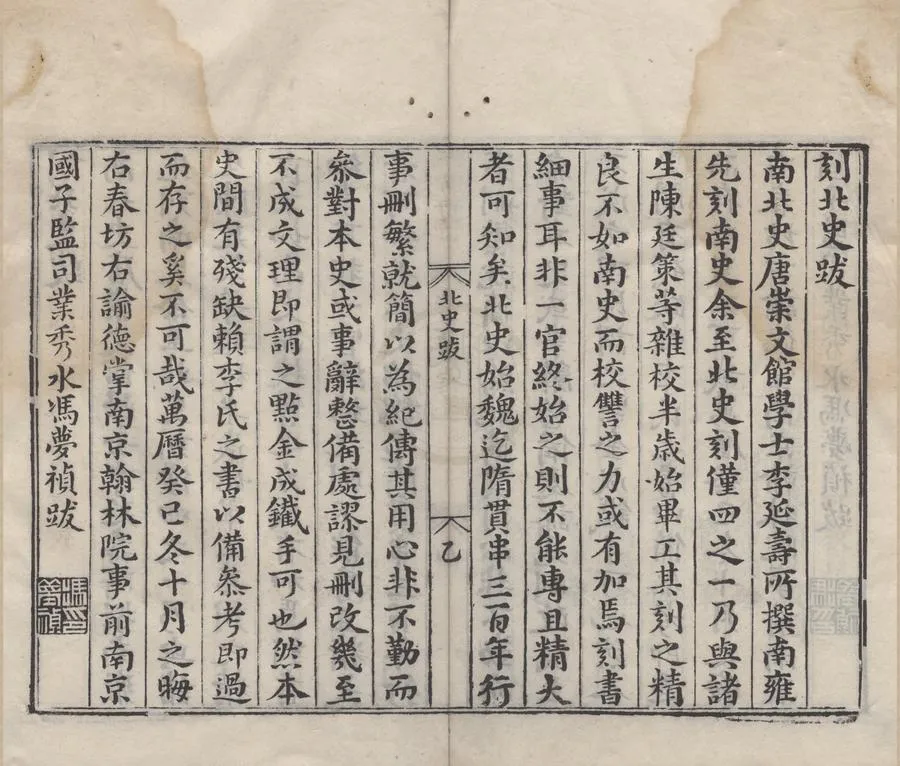 刻北史跋
南北史唐崇文館學士李延壽所撰南雍
先刻南史余至北史刻僅四之一乃與諸
生陳廷策等雜校半歲始畢工其刻之精
良不如南史而校讐之力或有加焉刻書
細事耳非一官終始之則不能專且精大
者可知矣北史始魏迄隋貫串三百年行
北史跋
乙
事刪繁就簡以為紀傳其用心非不勤而
叅對本史或事辭整備處謬見刪改幾至
不成文理即謂之點金成鐵手可也然本
史間有殘缺賴李氏之書以備叅考即過
而存之奚不可哉萬曆癸巳冬十月之晦
右春坊右諭德掌南京翰林院事前南京
國子監司業秀水馮夢禎跋
馮印夢禎